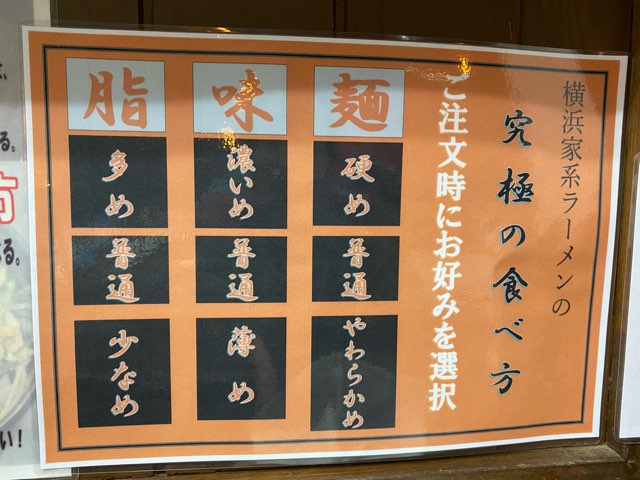 横浜家系ラーメンの
究極の食べ方
ご注文時にお好みを選択
麺
硬め
普通
やわらかめ
味
濃いめ
普通
薄め
脂
多め
普通
少なめ
る。
る。
い！